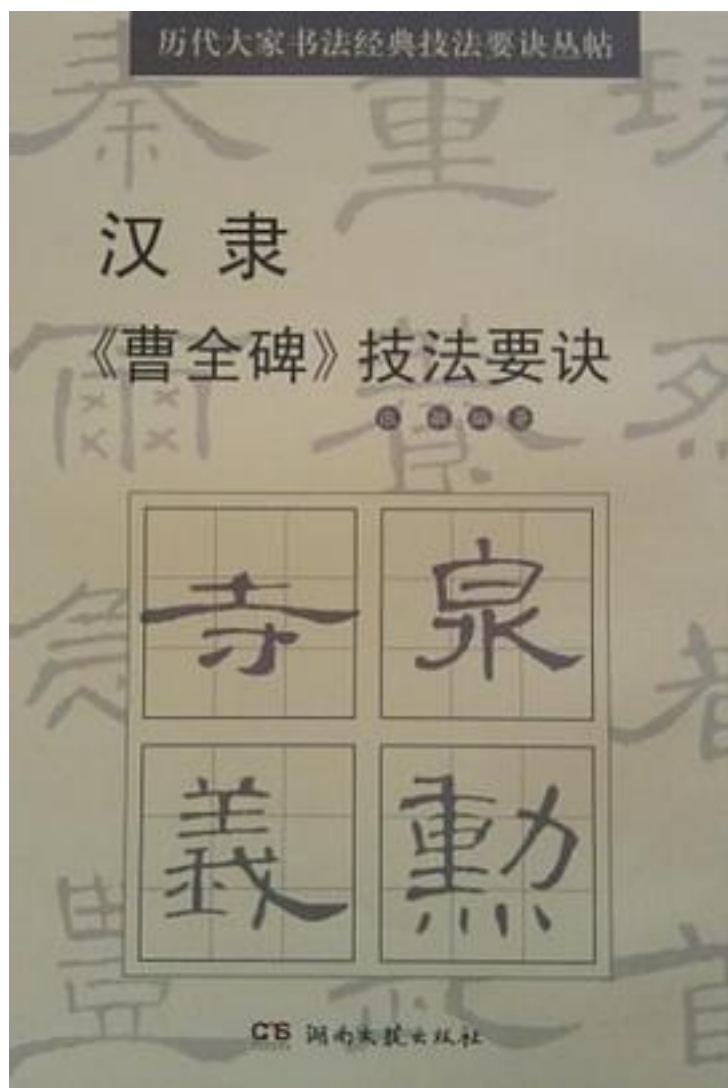 历代大家书法经典技法要诀丛帖
汉隶
《曹全碑》技法要诀
寺 泉
義 勲
湖南文艺出版社